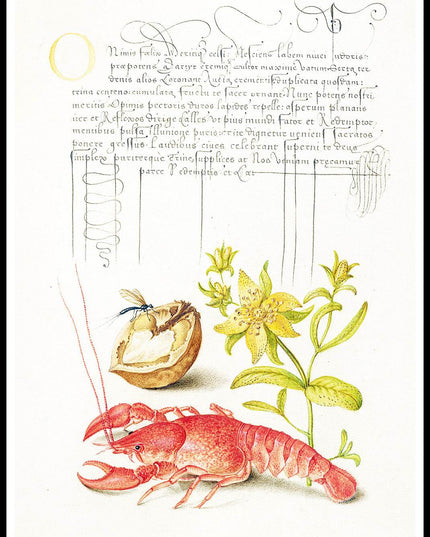 O Nimis fœlix Meritiq; celsi Nesciens labem nivei pudoris:
præpotens Martyr eremiq; cultor maxime vatum. Serta ter
denis alios Coronant Aucta crementis, duplicata quosdam:
trina centeno cumulata fructu te sacer ornant. Nunc potens nostri
meritis Opimis pectoris duros lapides repelle: asperum planans
iter et Reflexos dirige Calles. Ut pius mundi sator et Redemptor
mentibus pulsa Illuvione puris: rite dignetur veniens sacratos
ponere gressus. Laudibus cives celebrant superni te deus
simplex pariterque Trine, supplices at Nos Veniam precamur
parce Redemptis